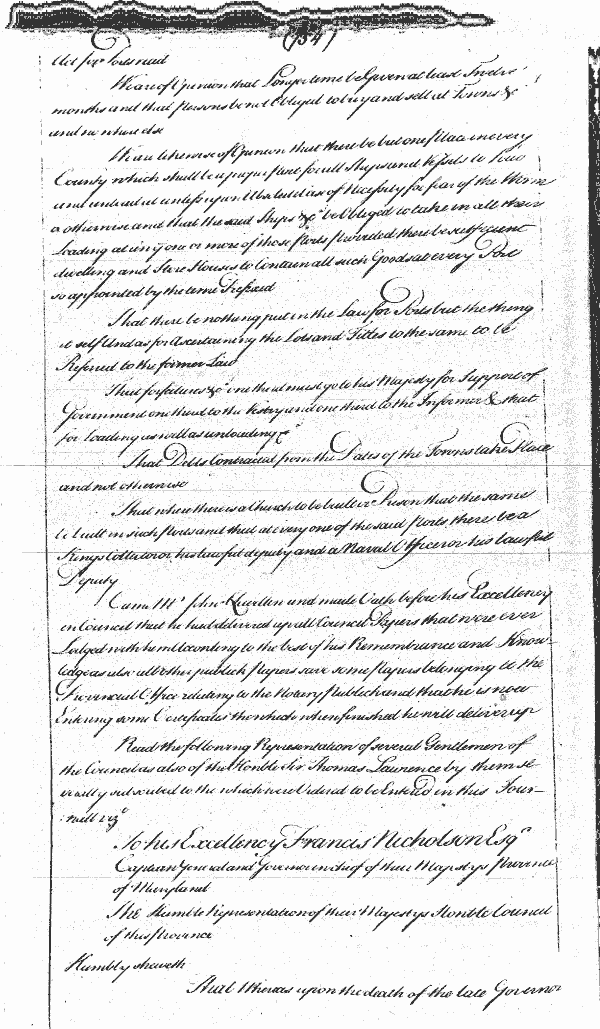 (754)
Act for Ports read
We are of Opinion that Longer time be Given at least Twelve
months and that persons be not Obliged to buy and sell at Towns &c
and no where else
We are likewise of Opinion that there be but one place in every
County which shall be a proper Port for all Ships and Vessels to
and unload at unless upon Absolute case of Necessity for fear of the Worme
or otherwise and that the said Ships &c be Obliged to take in all their
Loading at any one or more of those Ports provided there be sufficient
dwelling and Store Houses to Contain all such Goods at every Port
so appointed by the time
That there be nothing put in the Law for Ports but the thing
it self And as for Ascertaining the Lots and Titles to the same to be
Referred to the former Law
That forfeitures &c one third must go to his Majesty for Support of
Government one third to the Vestry and one third to the Informer & that
for Loading as well as unloading &c
That Debts Contracted from the Dates of the Towns take Place
and not otherwise
That where there is a Church to be built or Prison that the same
be built in such Ports and that at every one of the said Ports there be a
Kings Collector or his lawful deputy and a Naval Officer or his lawfull
Deputy
Came Mr John Llewellin and made Oath before his Excellency
in Council that he had delivered up all Council Papers that were ever
Lodged with him according to the best of his Remembrance and Know-
ledge as also all other publick Papers save some Papers belonging to the
Provincial Office relating to the Notary Publick and that he is now
Entering some Certificates the which when finished he will deliver up
Read the following Representation of several Gentlemen of
the Council as also of the Honble Sir Thomas Lawrence by them se
verally subscribed to the which were Ordered to be Entered in this Jour-
nall vizt
To his Excellency Francis Nicholson Esqr
Captain General and Governor in chief of their Majestys Province
of Maryland
The Humble Representation of their Majestys Honble Council
of this Province
Humbly sheweth
That Whereas upon the death of the late Governor